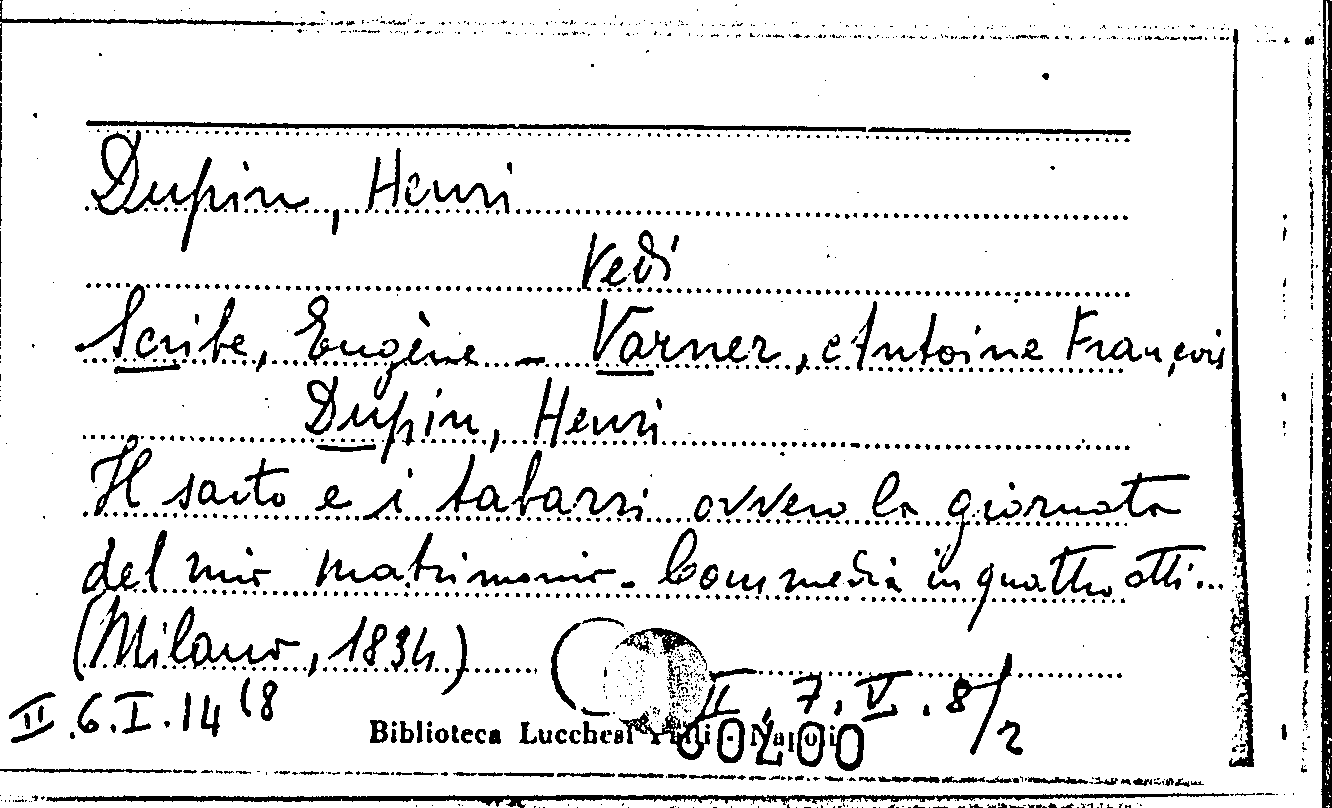 Dupin, Henri
Vedi
Scribe, Eugène - Varner, Antoine François
Dupin, Henri
Il sarto e i tabarri ovvero la giornata
del mio matrimonio. Commedia in quattro atti...
(Milano, 1834)
II.6.I.14(8 II.7.V.8/2
Biblioteca Lucchesi Palli - Napoli